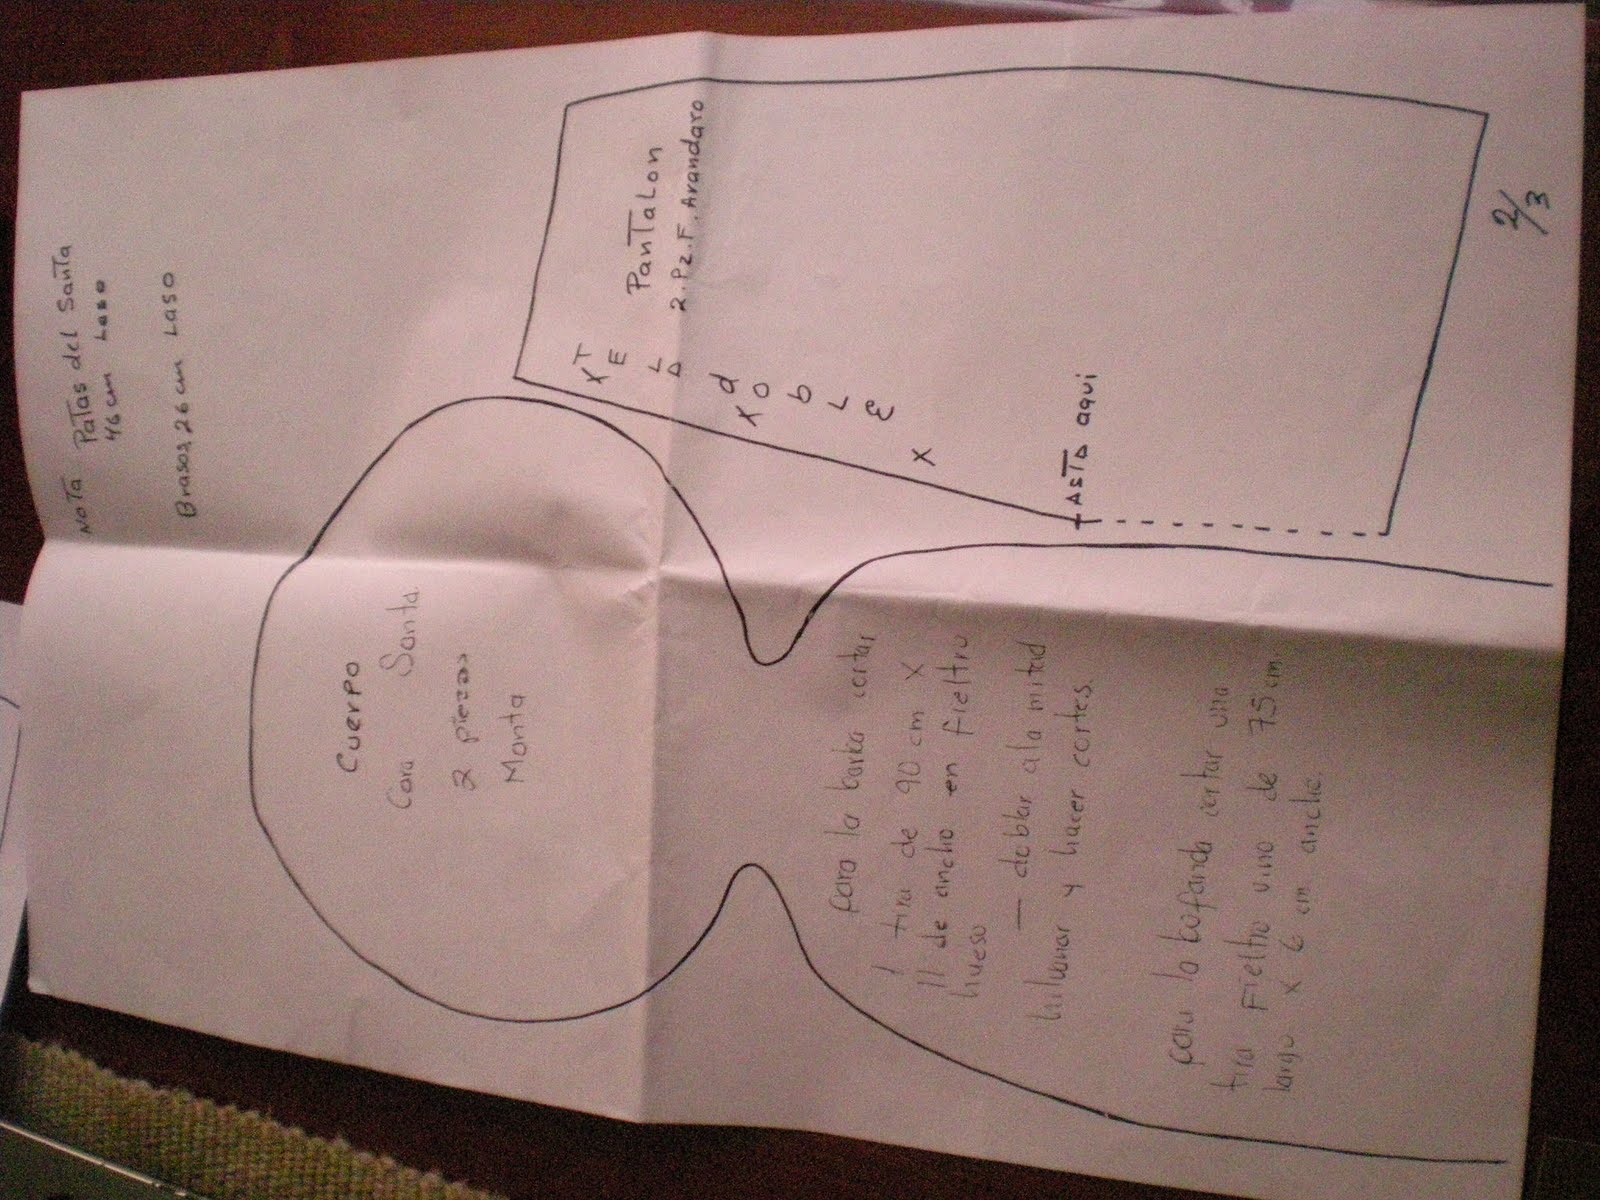 NOTA Patas del Santa
46 cm Laso
Brasos 26 cm Laso
Cuerpo
Cara Santa
2 piezas
Manta
Pantalon
2.Pz.F.Arandaro
X TELA
X dobLE
X
ASTA aqui
para la barba cortar
1 tira de 90 cm X
11 de ancho en fieltro
hueso
— doblar a la mitad
hilvanar y hacer cortes.
para la bufanda cortar una
tira Fieltro vino de 75 cm
largo x 6 cm ancho.
2/3